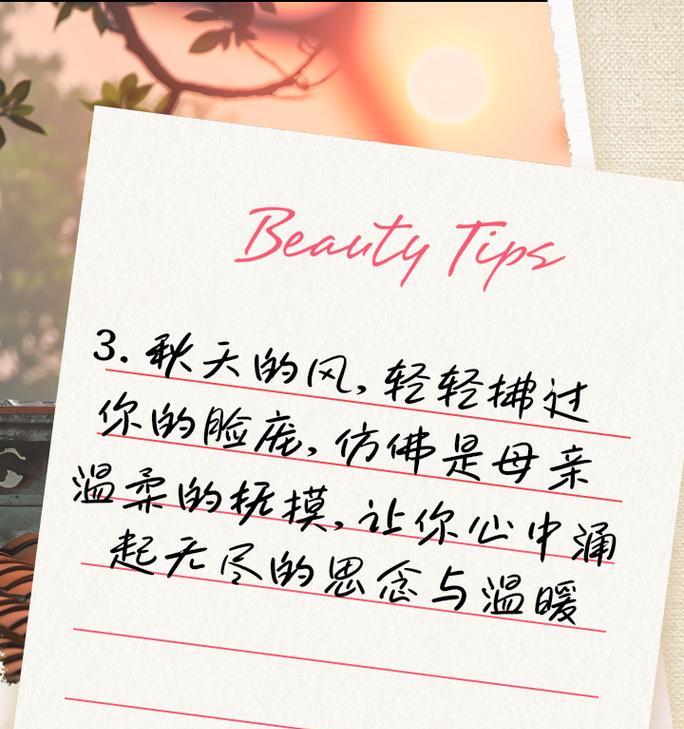 Beauty Tips
3. 秋天的风,轻轻拂过
你的脸庞,仿佛是母亲
温柔的抚摸,让你心中涌
起无尽的思念与温暖